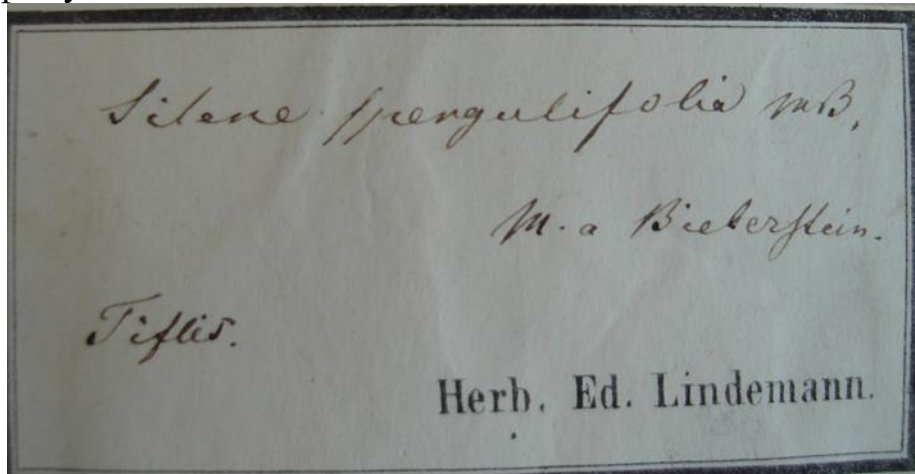 Silene spergulifolia MB,
M. a Bieberstein.
Tiflis.
Herb. Ed. Lindemann.